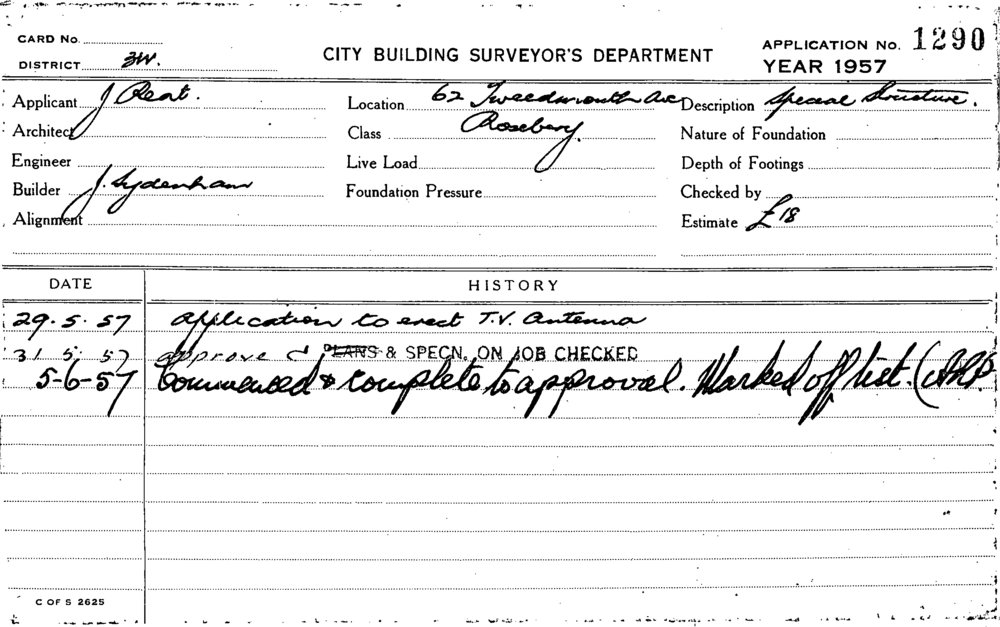 CARD No.
CITY BUILDING SURVEYOR'S DEPARTMENT
APPLICATION No. 1290
DISTRICT 3W.
YEAR 1957
Applicant J
Location 62 Tweedmouth Ave
Description Special Structure.
Architect
Class Rosebery.
Nature of Foundation
Engineer
Live Load
Depth of Footings
Builder J. Sydenham
Foundation Pressure
Checked by
Alignment
Estimate £18
DATE
HISTORY
29.5.57 Application to erect T.V. Antenna
31 5 57 approved PLANS & SPECN. ON JOB CHECKED
5-6-57 Commenced & complete to approval. Marked off list.
C OF S 2625